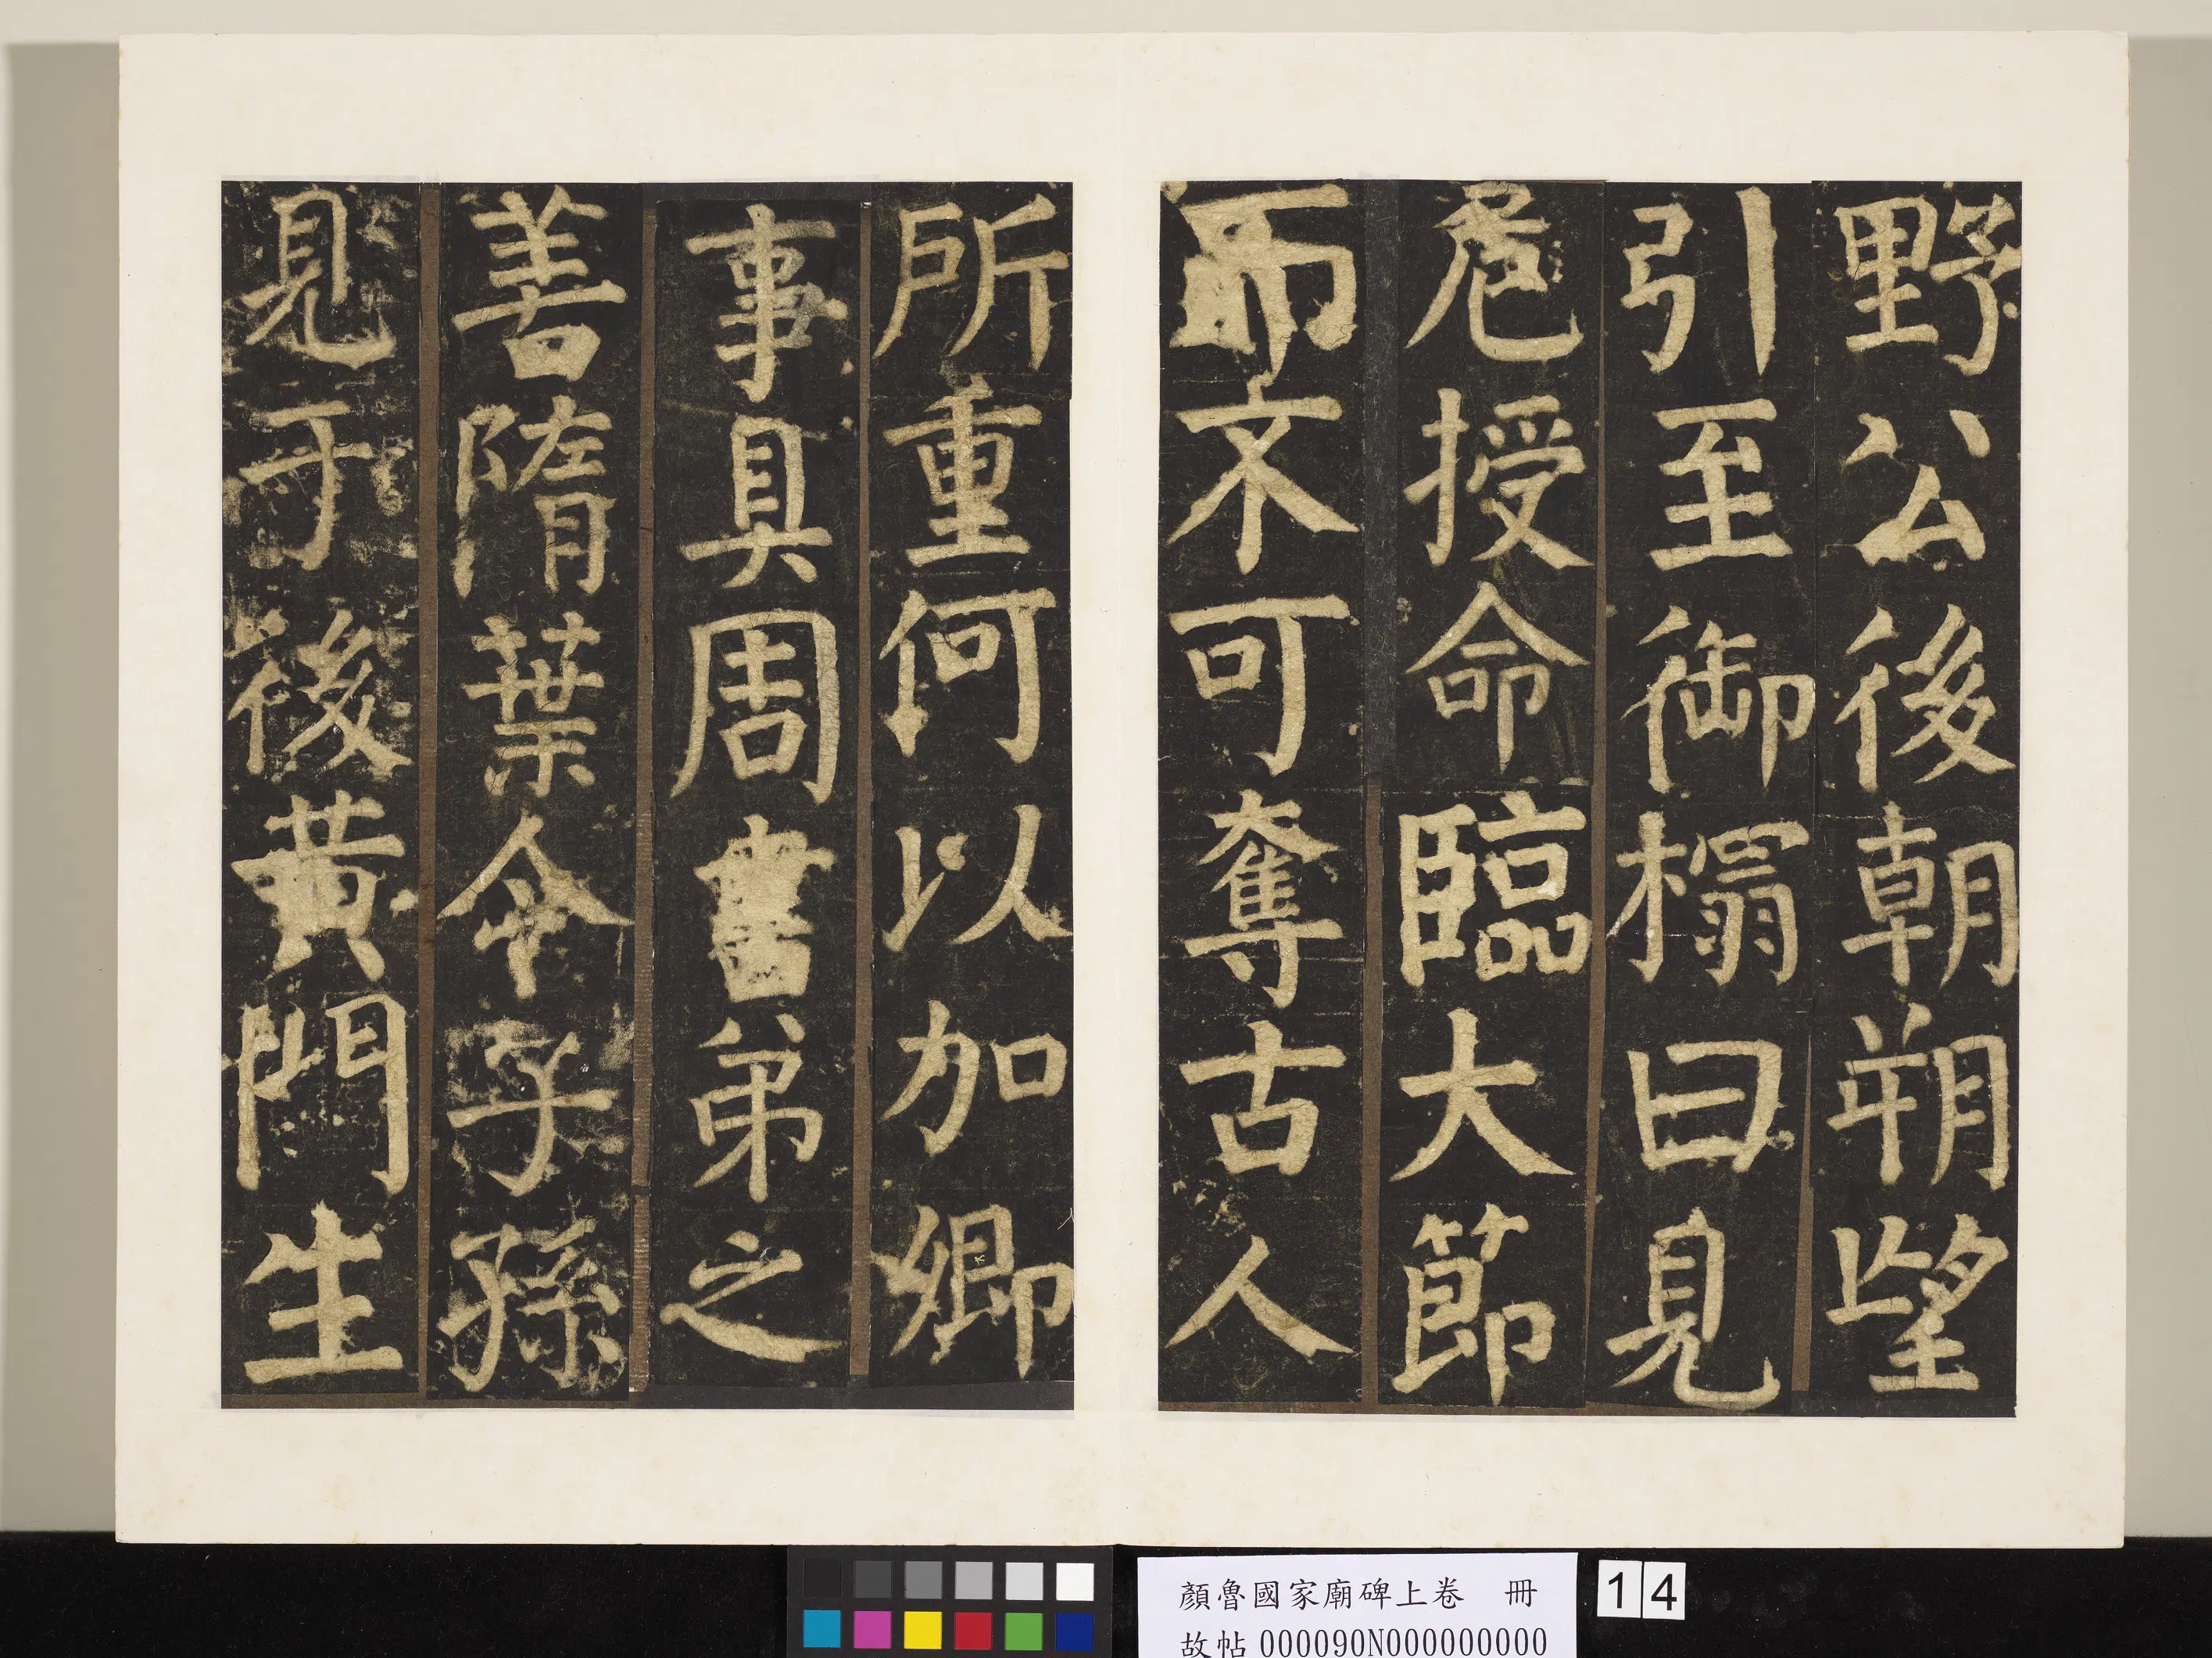 野公後朝朔望
引至御榻曰見
危授命臨大節
而不可奪古人
所重何以加卿
事具周書弟之
善隋葉令子孫
見于後黃門生
顏魯國家廟碑上卷 冊
故帖000090N000000000
14